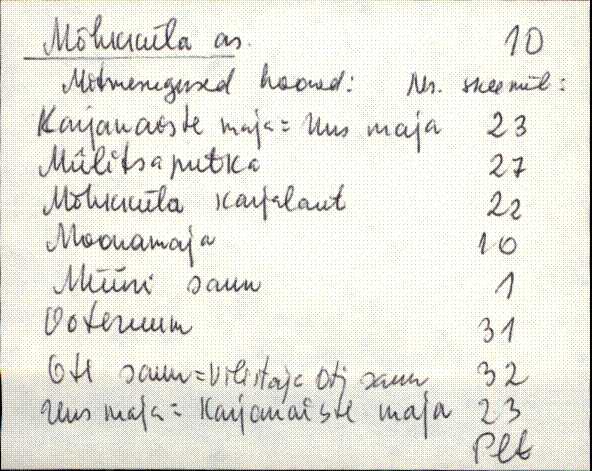 Mõhkküla as. 10
Mitmesugused hooned: Nr. skeemil:
Karjanaiste maja = Uus maja 23
Miilitsaputka 27
Mõhkküla karjalaut 22
Moonamaja 10
Müüri saun 1
Ooteruum 31
Oti saun = Vilistaja Otj saun 32
Uus maja = Karjanaiste maja 23